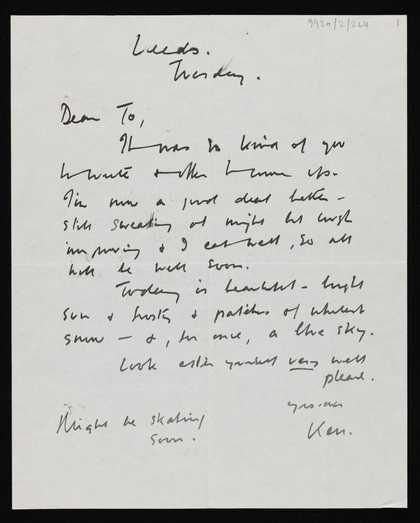 9920/2/264 1
Leeds.
Tuesday.
Dear To,
It was so kind of you
to write & offer to
I'm now a good deal better –
still sweating at night but
improving & I eat well, so all
will be well soon.
Today is beautiful – bright
sun & frosty & patches of
snow – &, for once, a blue sky.
Look after yourself very well
please.
yrs ever
Ken.
Might be skating
soon.